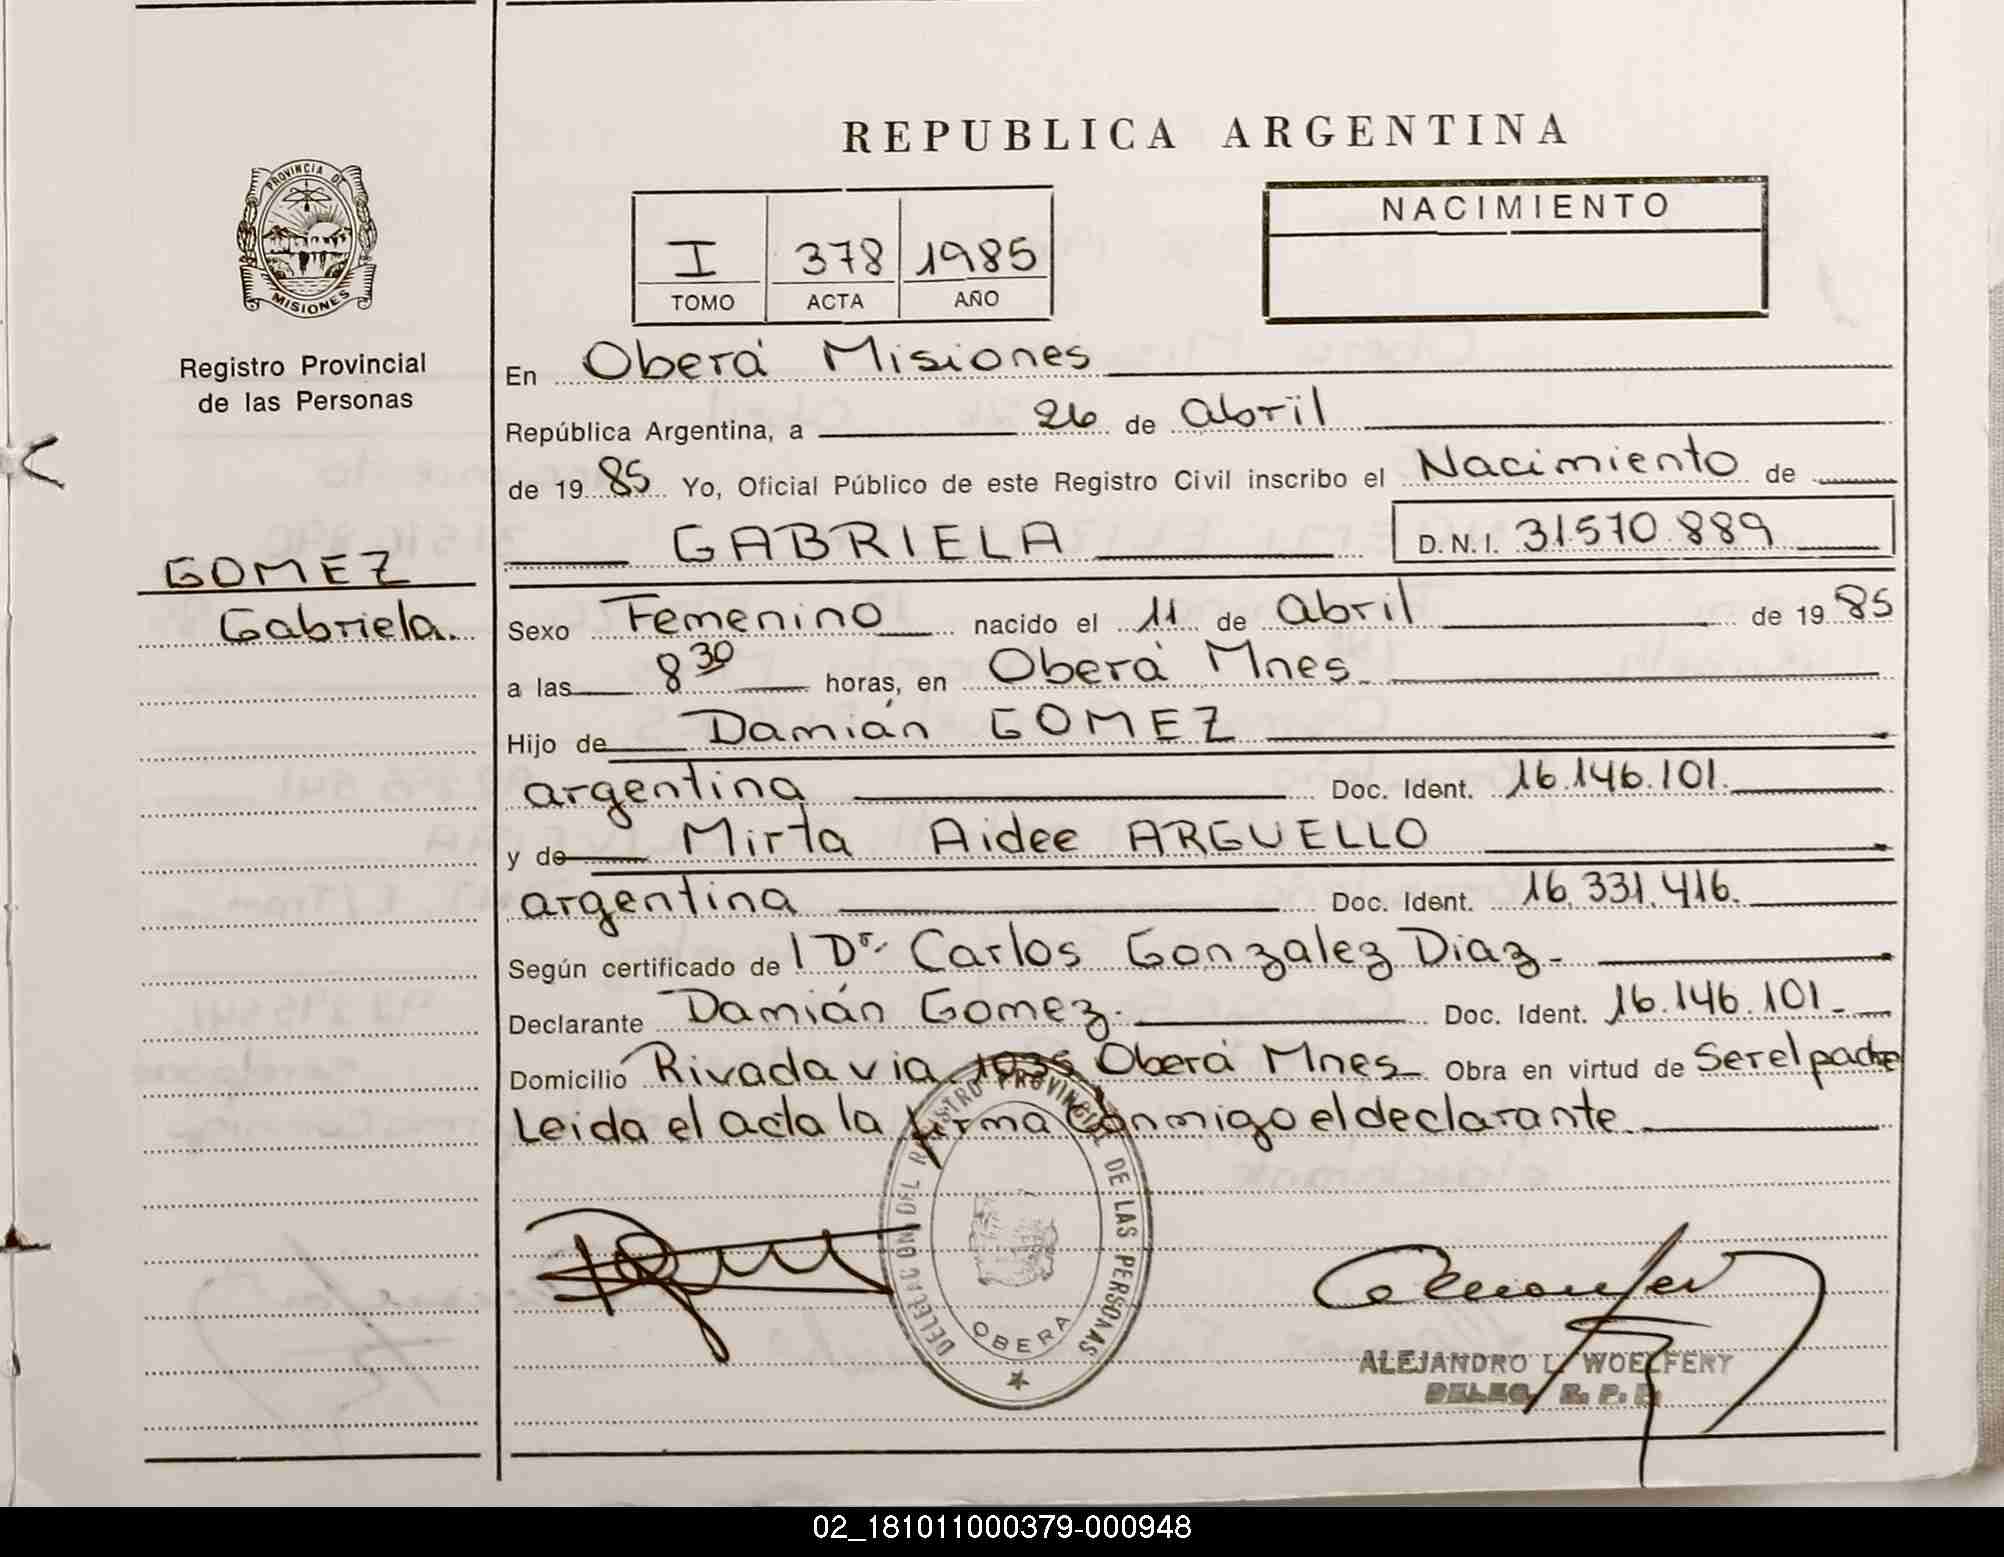 REPUBLICA ARGENTINA
PROVINCIA DE
MISIONES
Registro Provincial
de las Personas
GOMEZ
Gabriela.
I 378 1985
TOMO ACTA AÑO
NACIMIENTO
En Oberá Misiones
República Argentina, a 26 de abril
de 19 85 Yo, Oficial Público de este Registro Civil inscribo el Nacimiento de
GABRIELA D.N.I. 31.570.889
Sexo Femenino nacido el 11 de abril de 19 85
a las 8 30 horas, en Oberá Mnes.
Hijo de Damián GOMEZ
argentina Doc. Ident. 16.146.101.
y de Mirta Aidee ARGUELLO
argentina Doc. Ident. 16.331.416.
Según certificado de 1 Dr. Carlos Gonzalez Diaz.
Declarante Damián Gomez. Doc. Ident. 16.146.101.
Domicilio Rivadavia Oberá Mnes. Obra en virtud de Ser el padre
Leida el acta la firma conmigo el declarante
DELEGACION DEL REGISTRO PROVINCIAL DE LAS PERSONAS
OBERA
ALEJANDRO L. WOELFERT
DELEG. R. P. P.
02_181011000379-000948